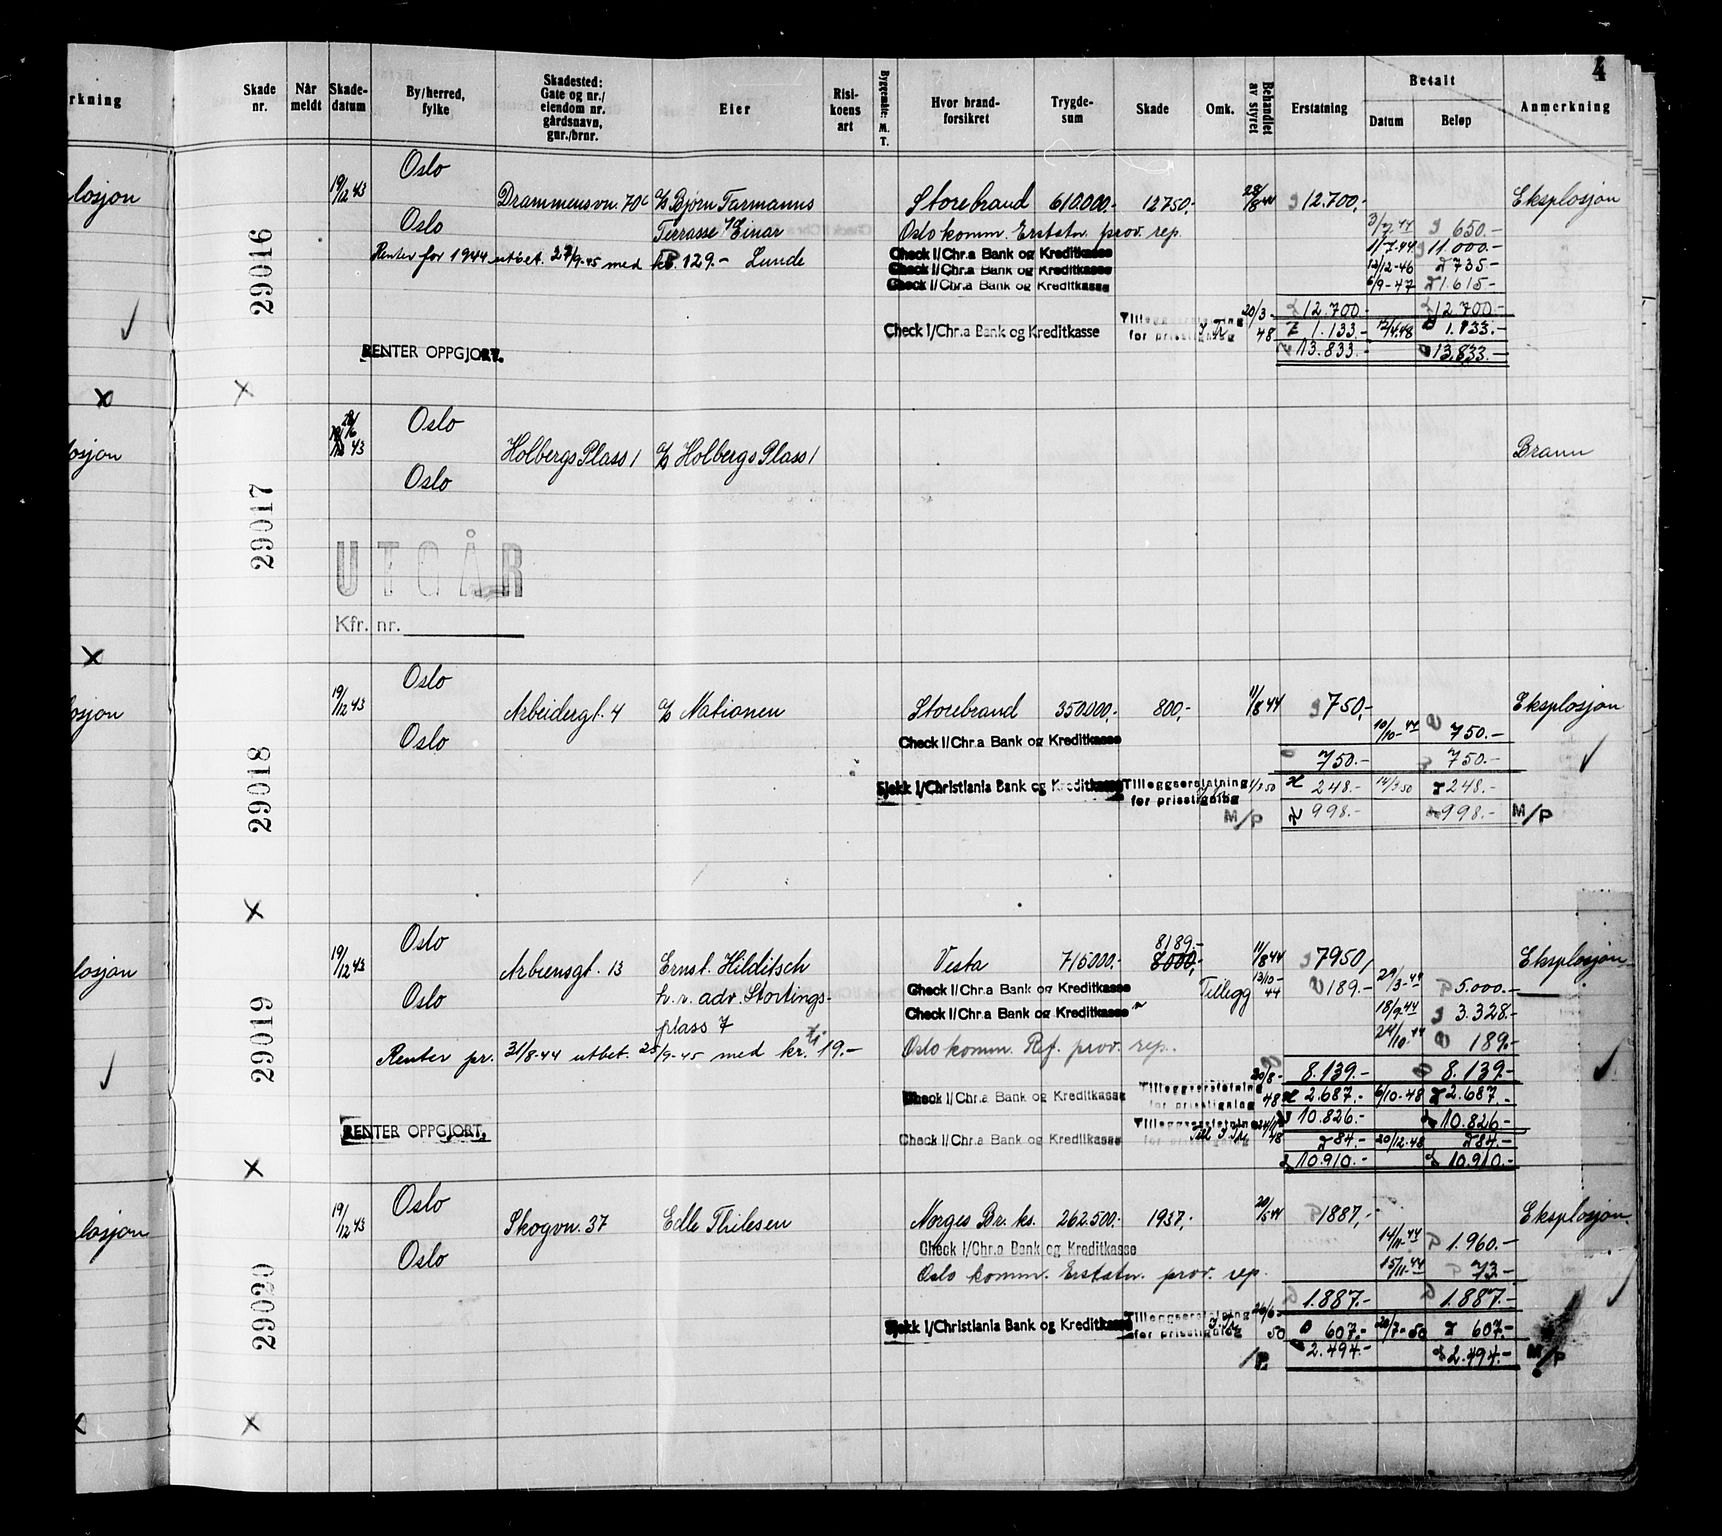 4
rkning
Skade nr.
Når meldt
Skade-datum
By/herred, fylke
Skadested: Gate og nr./ eiendom nr. gårdsnavn, gnr./brnr.
Eier
Risi-koens art
Byggemåte: M. T.
Hvor brand-forsikret
Trygde-sum
Skade
Omk.
Behandlet av styret
Erstatning
Betalt
Datum
Beløp
Anmerkning
losjon
29016
Oslo
19/12 43 Drammensvn. 70c % Bjørn Farmanns Storebrand 610.000.- 12750,- 28/8 44 12.700,- Eksplosjon
Oslo Terrasse v/Einar Oslo komm. Erstatn. prov. rep. 3/7.44 650.-
Renter for 1944 utbet. 27/9-45 med kr. 129.- Lunde Check I/Chr.a Bank og Kreditkasse 1/7.44 11000.-
Check I/Chr.a Bank og Kreditkasse 12/12-46 735-
Check I/Chr.a Bank og Kreditkasse 6/9-47 1.615-
12.700- 12.700-
Check I/Chr.a Bank og Kreditkasse Tilleggserstatning for prisstigning 20/3-48 1.133.- 12/4.48 1.133.-
RENTER OPPGJORT. 13.833.- 13.833.-
x
x
losjon
29017
Oslo
43 Holbergs Plass 1 % Holbergs Plass 1 Brann
Oslo
UTGÅR
Kfr. nr.
x
losjon
29018
Oslo
19/12 43 Arbeidergt. 4 % Nationen Storebrand 350000,- 800,- 11/8 44 750,- Eksplosjon
Oslo Check I/Chr.a Bank og Kreditkasse 10/10-44 750.-
750.- 750.-
Sjekk I/Christiania Bank og Kreditkasse Tilleggserstatning for prisstigning 1/3 50 248.- 14/3 50 248.-
M/P 998.- 998.- M/P
x
losjon
29019
Oslo 8189.-
19/12 43 Arbiensgt. 13 Ernst Hilditsch Vesta 715000.- 8000,- 11/8 44 7950, Eksplosjon
Oslo h.r. adv. Stortings- Check I/Chr.a Bank og Kreditkasse Tillegg 13/10-44 189.- 29/3-44 5.000.-
plass 7 Check I/Chr.a Bank og Kreditkasse 18/9.44 3.328.-
24/10.44 189.-
Renter pr. 31/8-44 utbet. 25/9-45 med kr. 19.- Oslo komm. Ref. prov. rep.
8.139.- 8.139.-
Check I/Chr.a Bank og Kreditkasse Tilleggserstatning for prisstigning 20/8-48 2.687.- 6/10-48 2.687.-
10.826- 10.826-
RENTER OPPGJORT. Check I/Chr.a Bank og Kreditkasse Tilleggserstatning for prisstigning 48 84.- 20/12.48 84.-
10.910.- 10.910.-
x
losjon
29020
Oslo
19/12 43 Skogvn. 37 Edle Thilesen Norges Br. ks. 262.500.- 1937,- 20/5 44 1887,- Eksplosjon.
Oslo Check I/Chr.a Bank og Kreditkasse 14/11-44 1.960.-
Oslo komm. Erstatn. prov. rep. 15/11-44 73-
1.887.- 1.887.-
Sjekk I/Christiania Bank og Kreditkasse Tilleggserstatning for prisstigning 26/6-50 607.- 20/7-50 607.-
/P. 2.494.- 2.494.- M/P
x
x